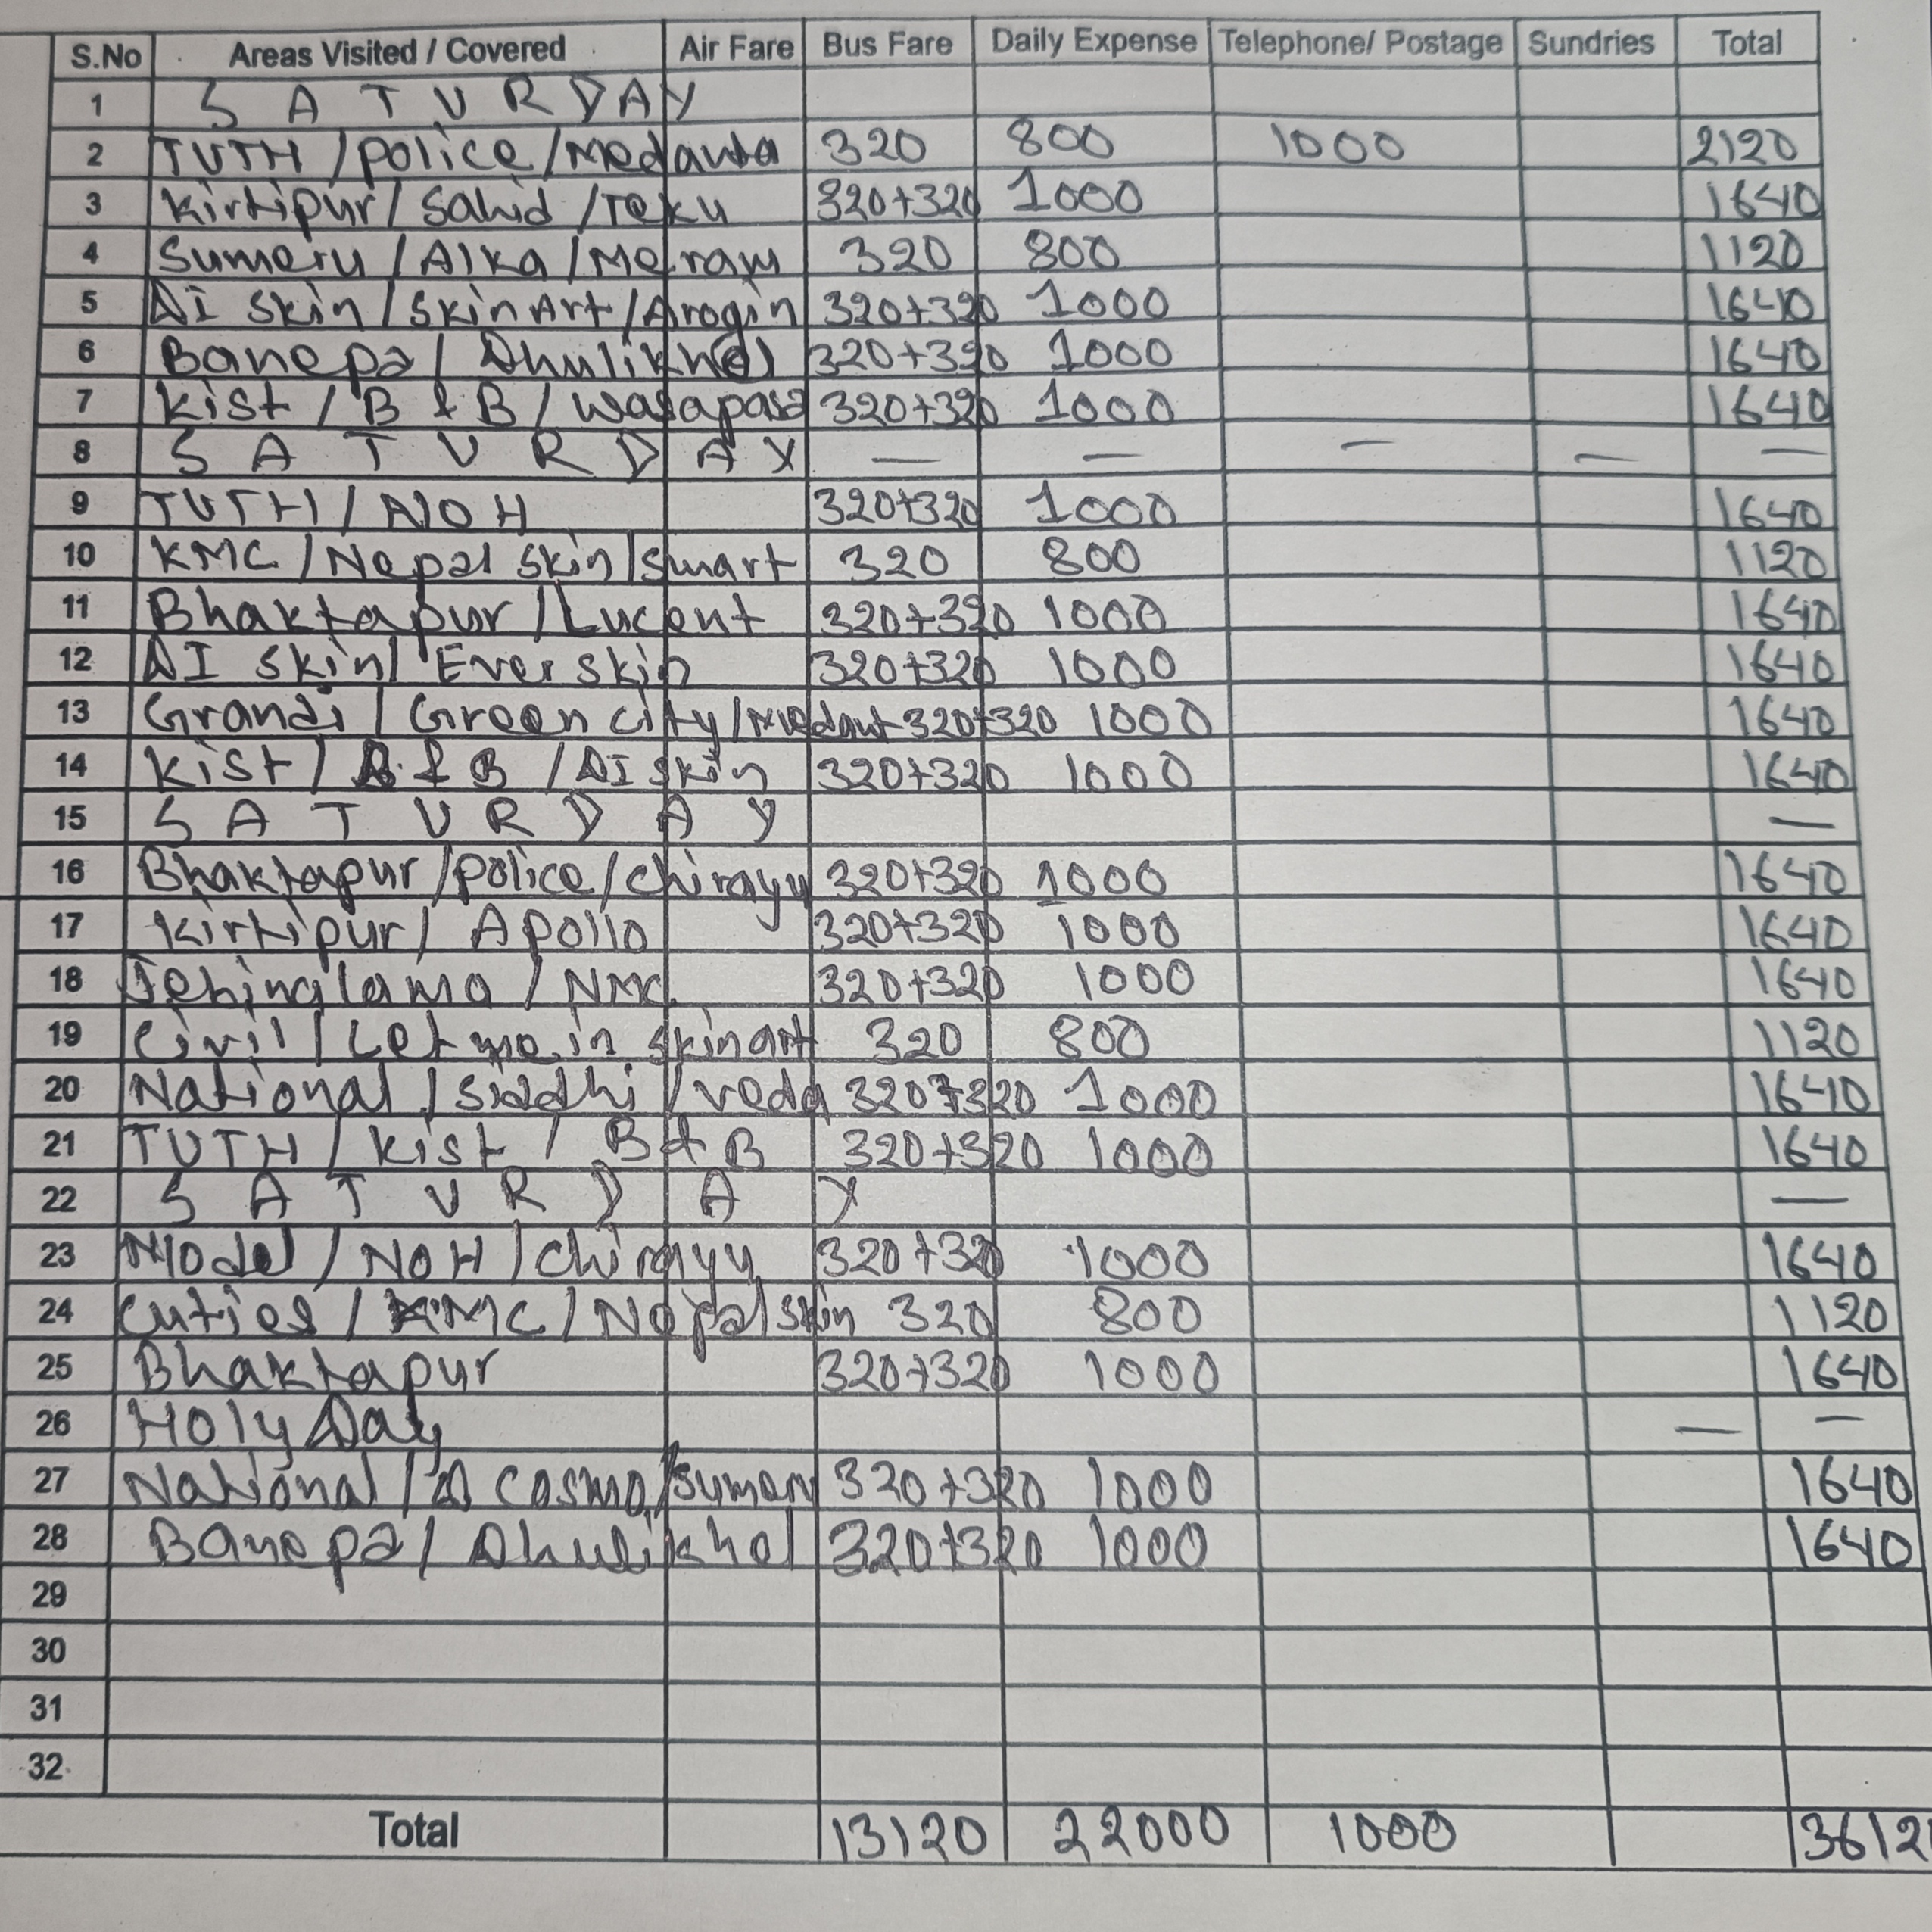 S.No Areas Visited / Covered Air Fare Bus Fare Daily Expense Telephone/ Postage Sundries Total
1 SATURDAY
2 TUTH / police / Medanta 320 800 1000 2120
3 Kirtipur / Sahid / Teku 320+320 1000 1640
4 Sumeru / Alka / 320 800 1120
5 DI Skin / Skin Art / Arogin 320+320 1000 1640
6 Banepa / Dhulikhel 320+320 1000 1640
7 Kist / B & B / 320+320 1000 1640
8 SATURDAY — — — — —
9 TUTH / NOH 320+320 1000 1640
10 KMC / Nepal Skin / Smart 320 800 1120
11 Bhaktapur / Lucent 320+320 1000 1640
12 DI Skin / Ever skin 320+320 1000 1640
13 Grandi / Green city / Medant 320+320 1000 1640
14 Kist / B & B / DI skin 320+320 1000 1640
15 SATURDAY —
16 Bhaktapur / police / chirayu 320+320 1000 1640
17 Kirtipur / Apollo 320+320 1000 1640
18 / NMC 320+320 1000 1640
19 Civil / Let me in skin art 320 800 1120
20 National / Siddhi / veda 320+320 1000 1640
21 TUTH / Kist / B & B 320+320 1000 1640
22 SATURDAY —
23 Model / NOH / Chirayu 320+320 1000 1640
24 Cuties / KMC / Nepal skin 320 800 1120
25 Bhaktapur 320+320 1000 1640
26 Holy Day — —
27 National / cosmo / Sumeru 320+320 1000 1640
28 Banepa / Dhulikhel 320+320 1000 1640
29
30
31
32
Total 13120 22000 1000 3612